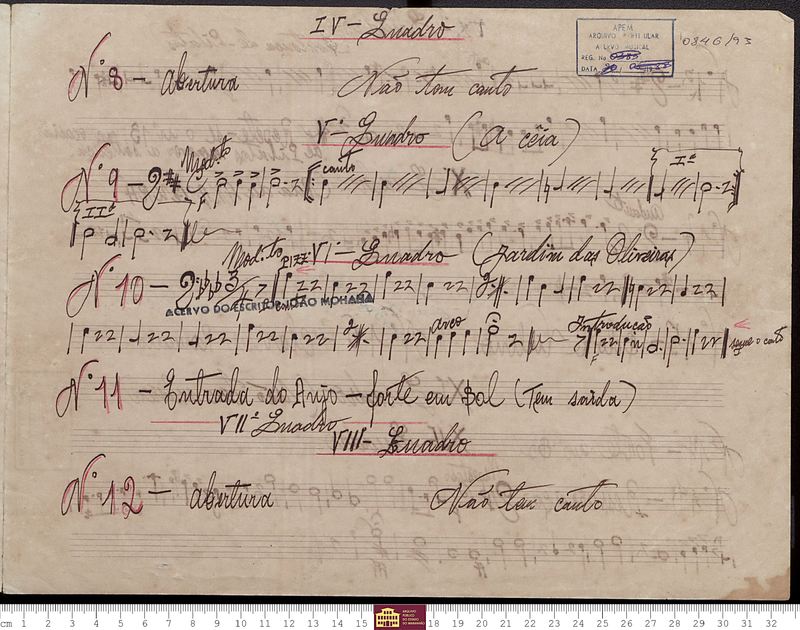 IV - Quadro
APEM
ARQUIVO PARTICULAR
ACERVO MUSICAL
REG. No 0385
DATA
0346/93
Nº 8 - Abertura Não tem canto
Vº Quadro (A ceia)
Nº 9 - Mod.to canto Iª
IIª
VIº Quadro (Jardim das Oliveiras)
Nº 10 - Mod.to PIZZ
ACERVO DO ESCRITOR JOÃO MOHANA
Arco Introdução segue o canto
Nº 11 - Entrada do Anjo - forte em Sol (Tem saida)
VIIº Quadro
VIII - Quadro
Nº 12 - Abertura Não tem canto
cm 1 2 3 4 5 6 7 8 9 10 11 12 13 14 15 ARQUIVO PÚBLICO DO ESTADO DO MARANHÃO 18 19 20 21 22 23 24 25 26 27 28 29 30 31 32